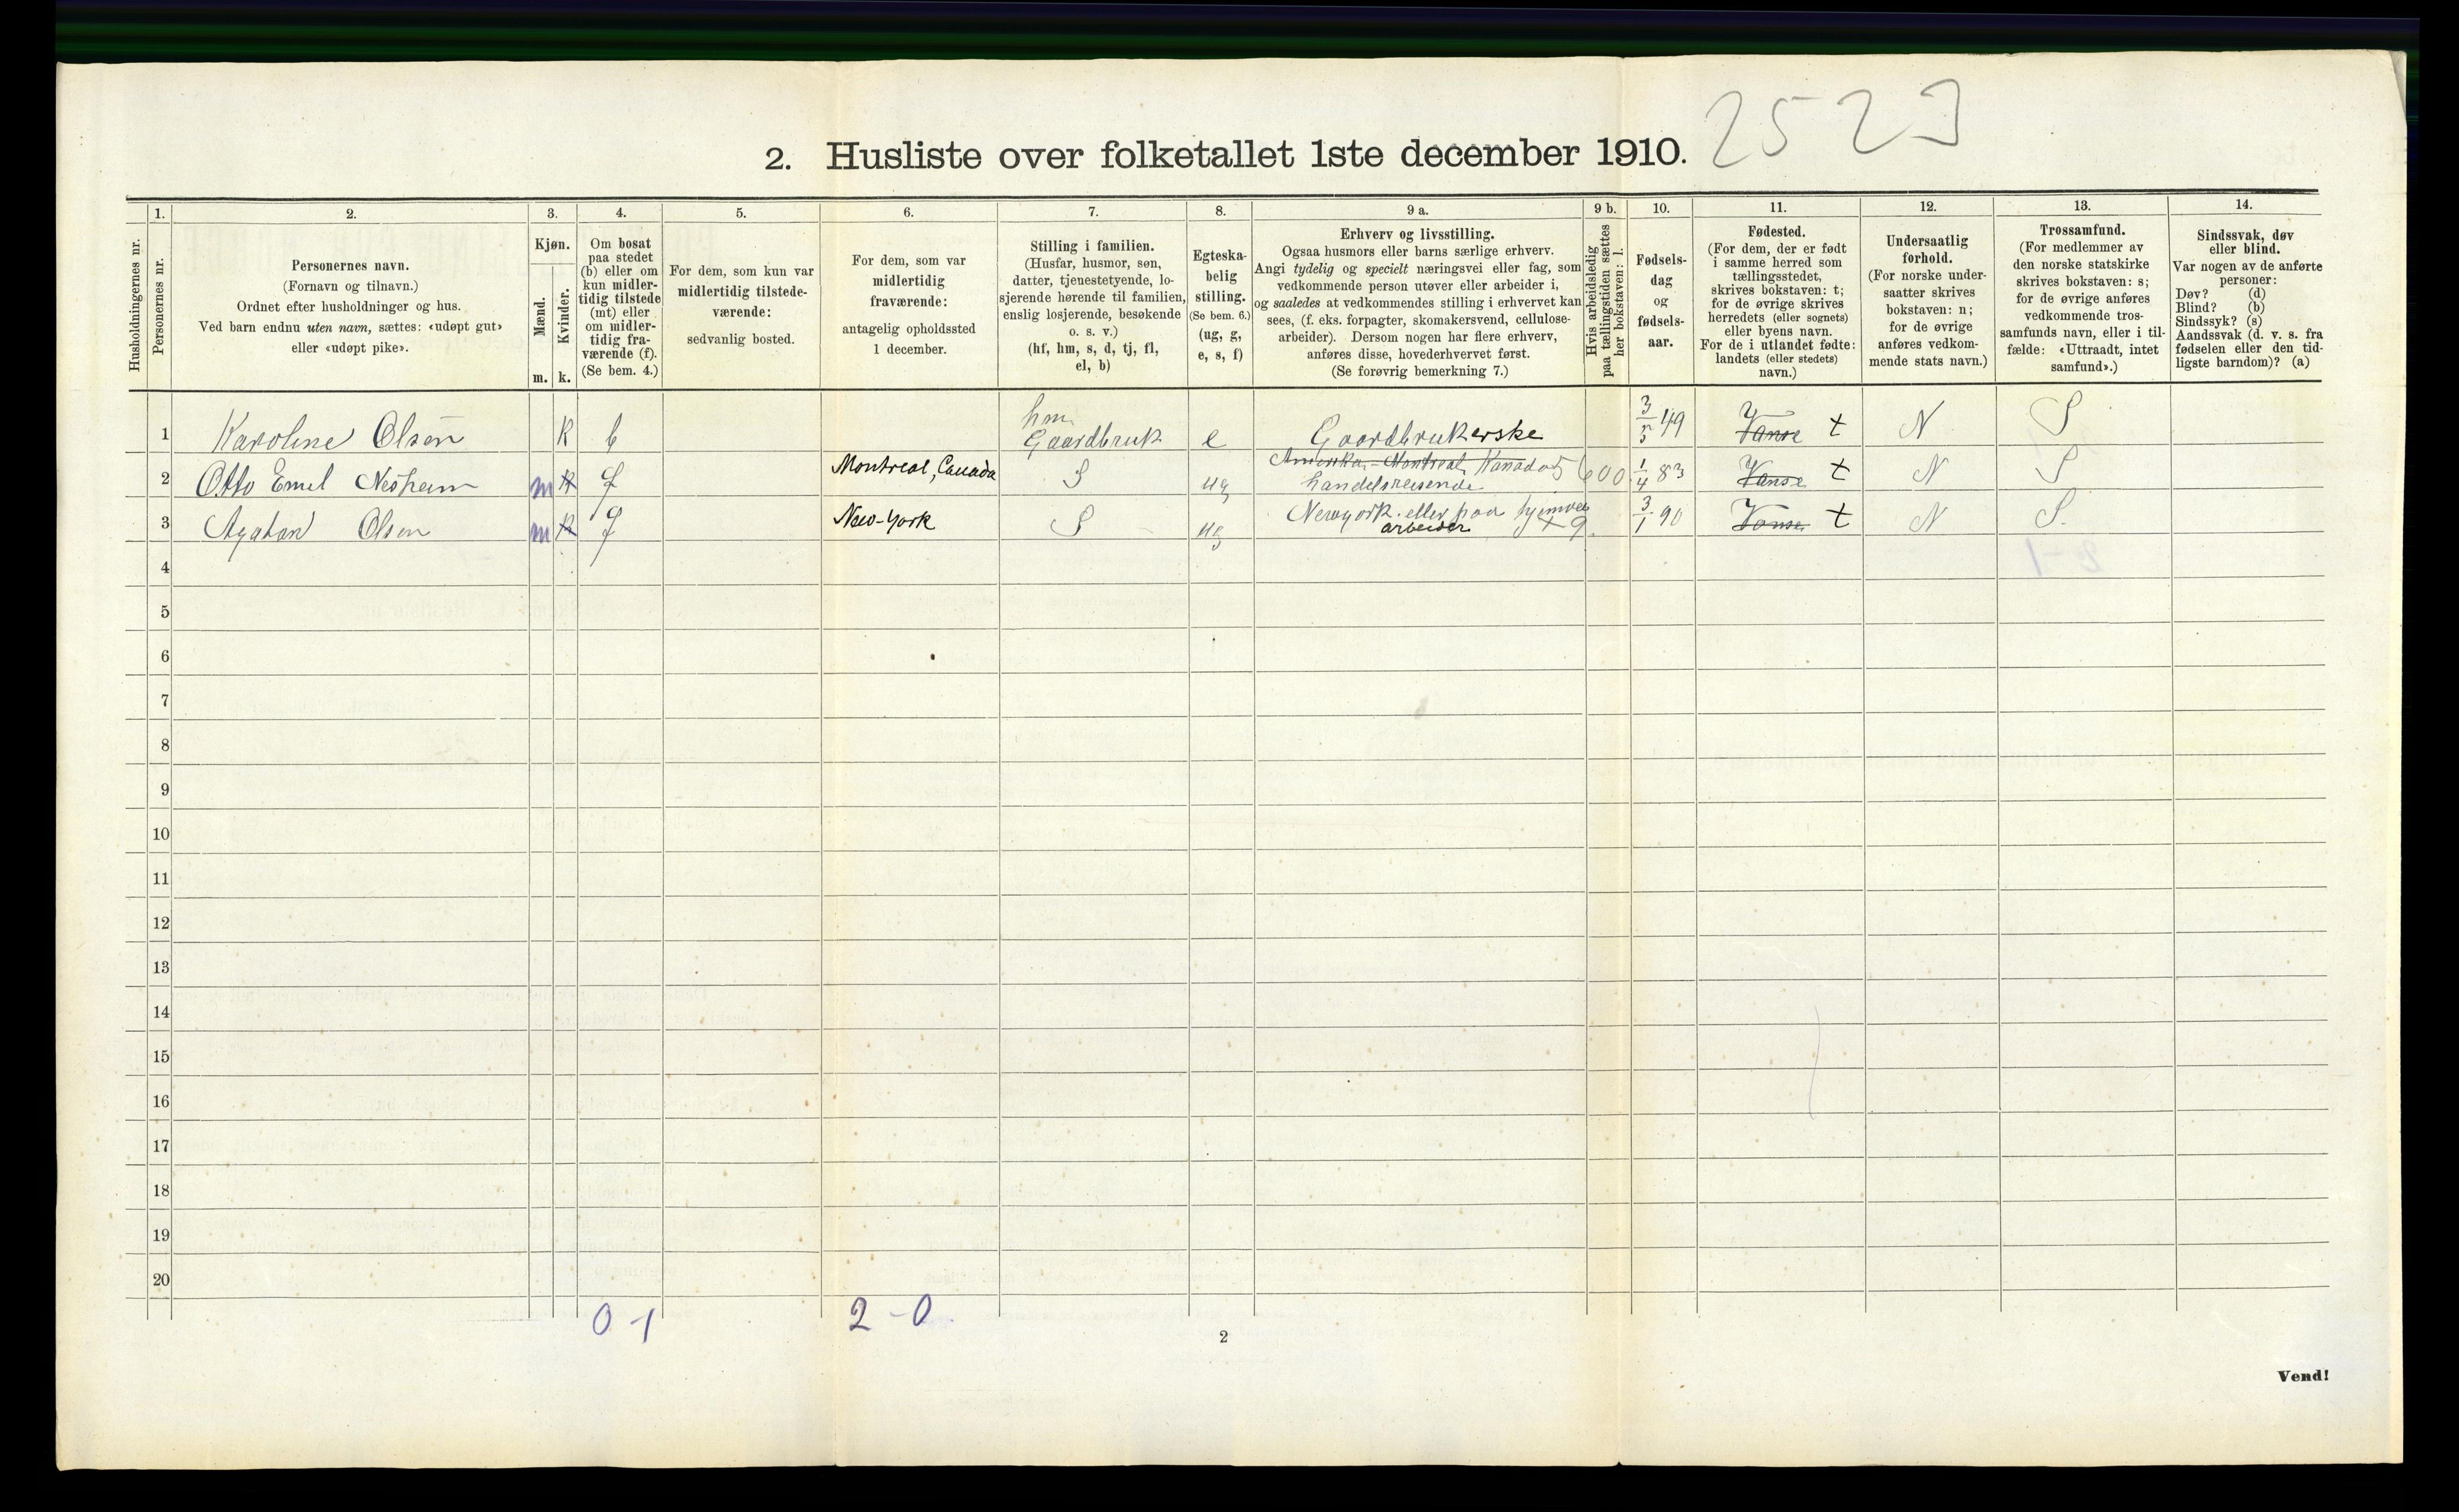 2523
2. Husliste over folketallet 1ste december 1910.
Husholdningernes nr.
1.
Personernes nr.
2.
Personernes navn.
(Fornavn og tilnavn.)
Ordnet efter husholdninger og hus.
Ved barn endnu uten navn, sættes: «udøpt gut»
eller «udøpt pike».
3.
Kjøn.
Mænd.
Kvinder.
m. k.
4.
Om bosat
paa stedet
(b) eller om
kun midler-
tidig tilstede
(mt) eller
om midler-
tidig fra-
værende (f).
(Se bem. 4.)
5.
For dem, som kun var
midlertidig tilstede-
værende:
sedvanlig bosted.
6.
For dem, som var
midlertidig
fraværende:
antagelig opholdssted
1 december.
7.
Stilling i familien.
(Husfar, husmor, søn,
datter, tjenestetyende, lo-
sjerende hørende til familien,
enslig losjerende, besøkende
o. s. v.)
(hf, hm, s, d, tj, fl,
el, b)
8.
Egteska-
belig
stilling.
(Se bem. 6.)
(ug, g,
e, s, f)
9 a.
Erhverv og livsstilling.
Ogsaa husmors eller barns særlige erhverv.
Angi tydelig og specielt næringsvei eller fag, som
vedkommende person utøver eller arbeider i,
og saaledes at vedkommendes stilling i erhvervet kan
sees, (f. eks. forpagter, skomakersvend, cellulose-
arbeider). Dersom nogen har flere erhverv,
anføres disse, hovederhvervet først.
(Se forøvrig bemerkning 7.)
9 b.
Hvis arbeidsledig
paa tællingstiden sættes
her bokstaven: l.
10.
Fødsels-
dag
og
fødsels-
aar.
11.
Fødested.
(For dem, der er født
i samme herred som
tællingsstedet,
skrives bokstaven: t;
for de øvrige skrives
herredets (eller sognets)
eller byens navn.
For de i utlandet fødte:
landets (eller stedets)
navn.)
12.
Undersaatlig
forhold.
(For norske under-
saatter skrives
bokstaven: n;
for de øvrige
anføres vedkom-
mende stats navn.)
13.
Trossamfund.
(For medlemmer av
den norske statskirke
skrives bokstaven: s;
for de øvrige anføres
vedkommende tros-
samfunds navn, eller i til-
fælde: «Uttraadt, intet
samfund».)
14.
Sindssvak, døv
eller blind.
Var nogen av de anførte
personer:
Døv? (d)
Blind? (b)
Sindssyk? (s)
Aandssvak (d. v. s. fra
fødselen eller den tid-
ligste barndom)? (a)
hm
1 Karoline Olsen K b Gaardbruk e Gaardbrukerske 3/5 49 Vanse t N S
Amerika - Montreal, Kanada 5600
2 Otto Emel Nesheim m K f Montreal, Canada S ug handelsreisende 1/4 83 Vanse t N S
3 Agaton Olsen m K f New-York S ug Newyork eller paa hjemvei 3/1 90 Vanse t N S.
arbeider + 9
4
5
6
7
8
9
10
11
12
13
14
15
16
17
18
19
20
0 - 1
2 - 0
2
Vend!